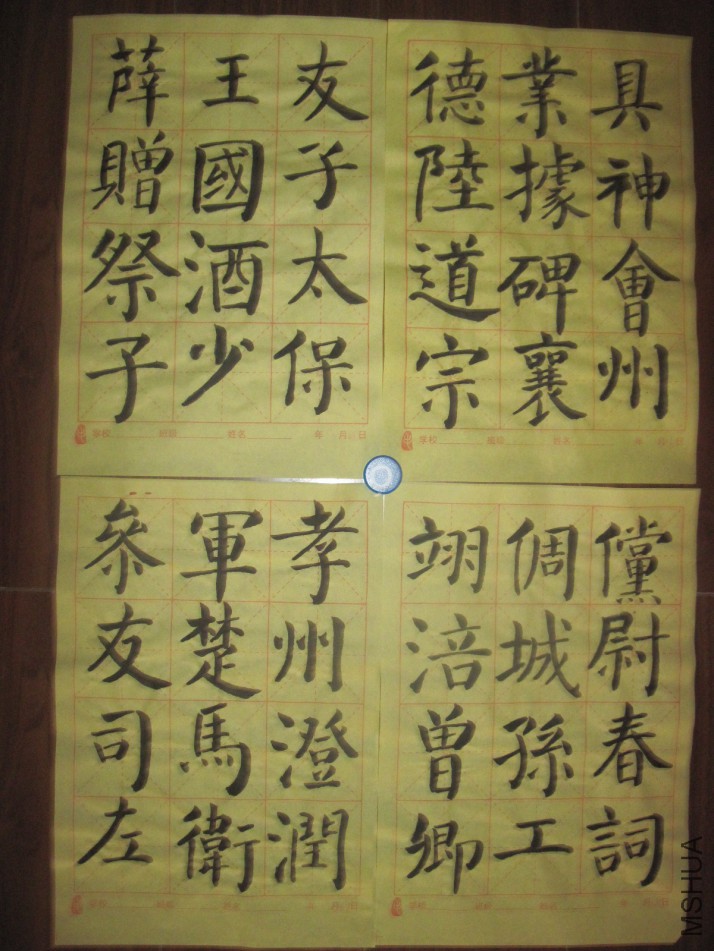 具神會州
業據碑襄
德陸道宗
友子太保
王國酒少
薛贈祭子
儻尉春詞
倜城孫工
翊涪曾卿
孝州澄潤
軍楚馬衛
參友司左
姓名 年 月 日
MSHUA